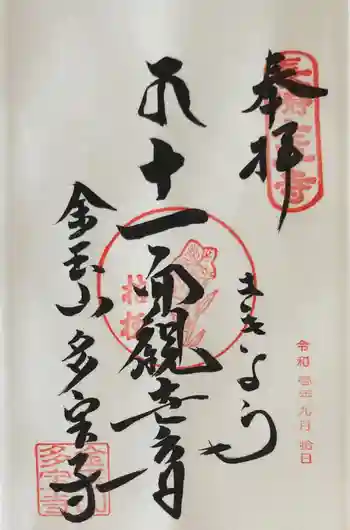 奉拝
ききょう
十一面観世音
金玉山 多宝寺
令和 九月 拾日
桔梗
多宝寺